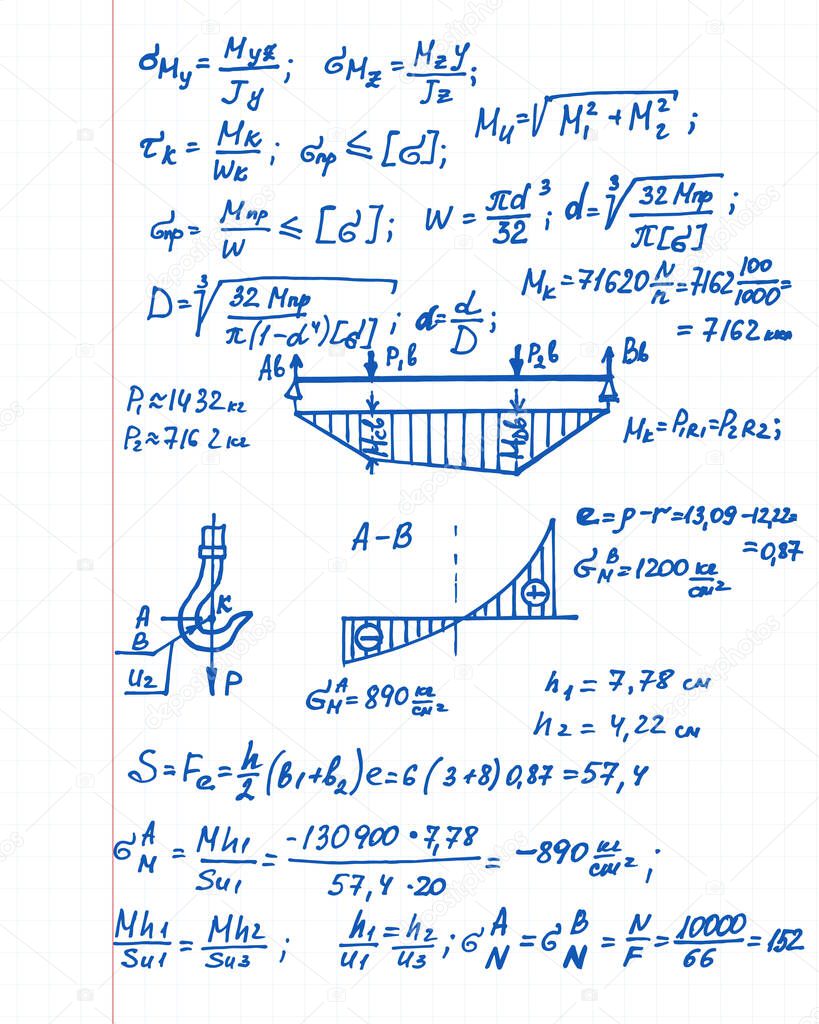 σ_My = Myz / Jy ; σ_Mz = Mzy / Jz ;
τ_к = Mк / Wк ; σпр ≤ [σ] ; Mи = √(M₁² + M₂²) ;
σпр = Mпр / W ≤ [σ] ; W = πd³ / 32 ; d = ³√(32 Mпр / π[σ]) ;
D = ³√(32 Mпр / π(1-d⁴)[σ]) ; d = d / D ;
Mк = 71620 N/n = 7162 100/1000 =
= 7162 кгсм
Aв P₁в P₂в Bв
P₁ ≈ 1432 кг
P₂ ≈ 7162 кг
Mсв MDв
Mк = P₁R₁ = P₂R₂ ;
A-B
e = ρ - r = 13,09 - 12,22 =
= 0,87
σ_M^B = 1200 кг/см²
A K
B
и₂ P
- +
σ_M^A = 890 кг/см²
h₁ = 7,78 см
h₂ = 4,22 см
S = Fe = h/2 (в₁+в₂) e = 6 (3+8) 0,87 = 57,4
σ_M^A = Mh₁ / Sи₁ = -130900 • 7,78 / 57,4 • 20 = -890 кг/см² ;
Mh₁ / Sи₁ = Mh₂ / Sи₃ ; h₁ / и₁ = h₂ / и₃ ; σ_N^A = σ_N^B = N / F = 10000 / 66 = 152
depositphotos